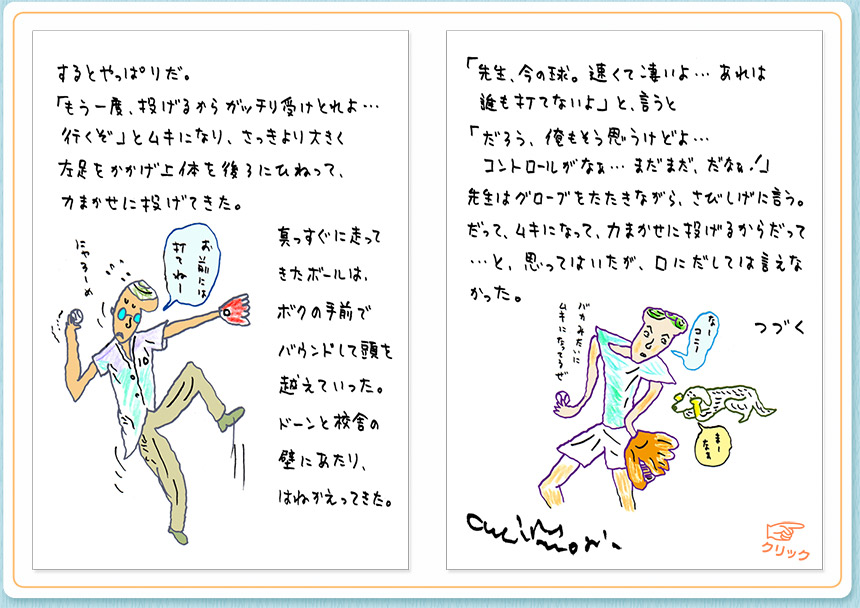 するとやっぱりだ。
「もう一度、投げるからガッチリ受けとれよ…
行くぞ」とムキになり、さっきより大きく
左足をかかげ上体を後ろにひねって、
力まかせに投げてきた。
にゃろーめ
お前には
打てねー
10
真っすぐに走って
きたボールは、
ボクの手前で
バウンドして頭を
越えていった。
ドーンと校舎の
壁にあたり、
はねかえってきた。
「先生、今の球。速くて凄いよ…あれは
誰も打てないよ」と、言うと
「だろう、俺もそう思うけどよ…
コントロールがなぁ…まだまだ、だなぁ!」
先生はグローブをたたきながら、さびしげに言う。
だって、ムキになって、力まかせに投げるからだって
…と、思ってはいたが、口にだしては言えな
かった。
つづく
バカみたいに
ムキになってるぜ
なー
コニー
まー
なぁ
クリック